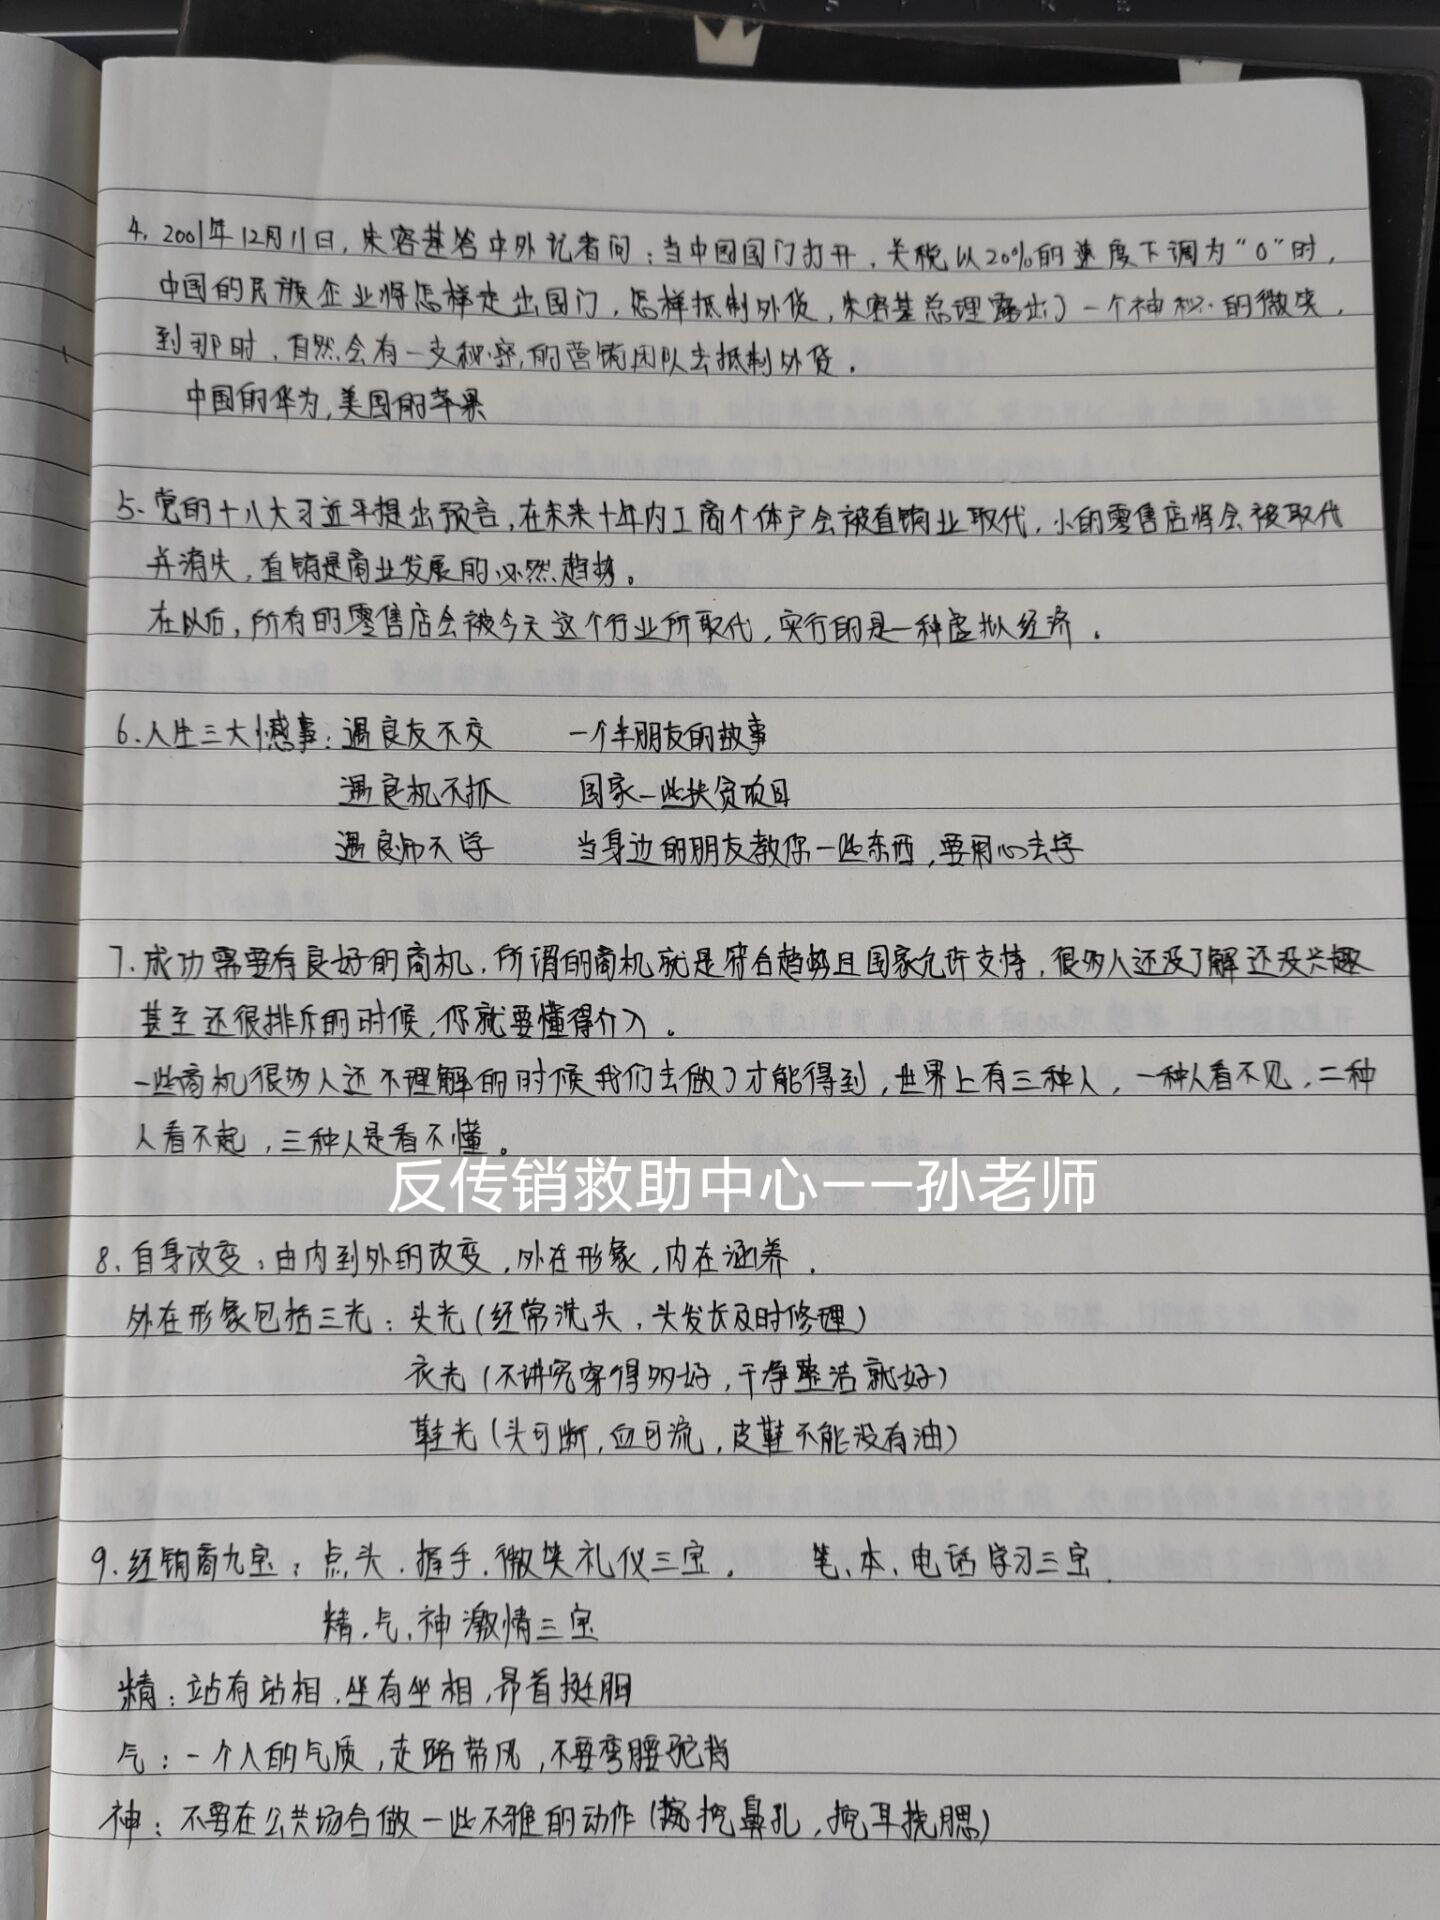 4、2001年12月11日，朱容基答中外记者问：当中国国门打开，关税以20%的速度下调为“0”时，
中国的民族企业将怎样走出国门，怎样抵制外货，朱容基总理露出了一个神秘的微笑，
到那时，自然会有一支秘密的营销团队去抵制外货。
中国的华为，美国的苹果
5、党的十八大习近平提出预言，在未来十年内工商个体户会被直销业取代，小的零售店将会被取代
并消失，直销是商业发展的必然趋势。
在以后，所有的零售店会被今天这个行业所取代，实行的是一种虚拟经济。
6、人生三大憾事：遇良友不交 一个半朋友的故事
遇良机不抓 国家一些扶贫项目
遇良师不学 当身边的朋友教你一些东西，要用心去学
7、成功需要有良好的商机，所谓的商机就是符合趋势且国家允许支持，很多人还没了解还没兴趣
甚至还很排斥的时候，你就要懂得介入。
一些商机很多人还不理解的时候我们去做了才能得到，世界上有三种人，一种人看不见，二种
人看不起，三种人是看不懂。
反传销救助中心——孙老师
8、自身改变：由内到外的改变，外在形象，内在涵养．
外在形象包括三光：头光（经常洗头，头发长及时修理）
衣光（不讲究穿得多好，干净整洁就好）
鞋光（头可断，血可流，皮鞋不能没有油）
9、经销商九宝：点头、握手、微笑礼仪三宝． 笔、本、电话学习三宝．
精、气、神激情三宝
精：站有站相，坐有坐相，昂首挺胸
气：一个人的气质，走路带风，不要弯腰驼背
神：不要在公共场合做一些不雅的动作（挖鼻孔，挖耳挠腮）